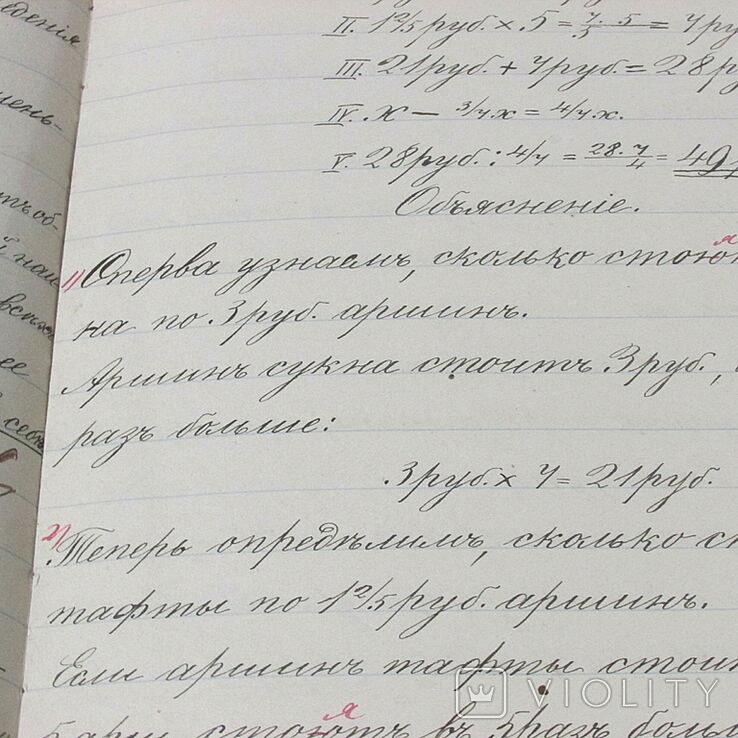 еденiя
II. 1 2/5 руб. × 5 = 7·5/5 = 7 ру
III. 21 руб. + 7 руб. = 28 р
IV. x — 3/7 x = 4/7 x.
V. 28 руб. : 4/7 = 28·7/4 = 49
Объясненiе.
1) Сперва узнаемъ, сколько стою
я
на по 3 руб. аршинъ.
Аршинъ сукна стоитъ 3 руб.,
разъ больше:
3 руб. × 7 = 21 руб.
2) Теперь опредѣлимъ, сколько с
тафты по 1 2/5 руб. аршинъ.
Если аршинъ тафты стои
я
5 арш. стоютъ въ 5 разъ боль
VIOLITY